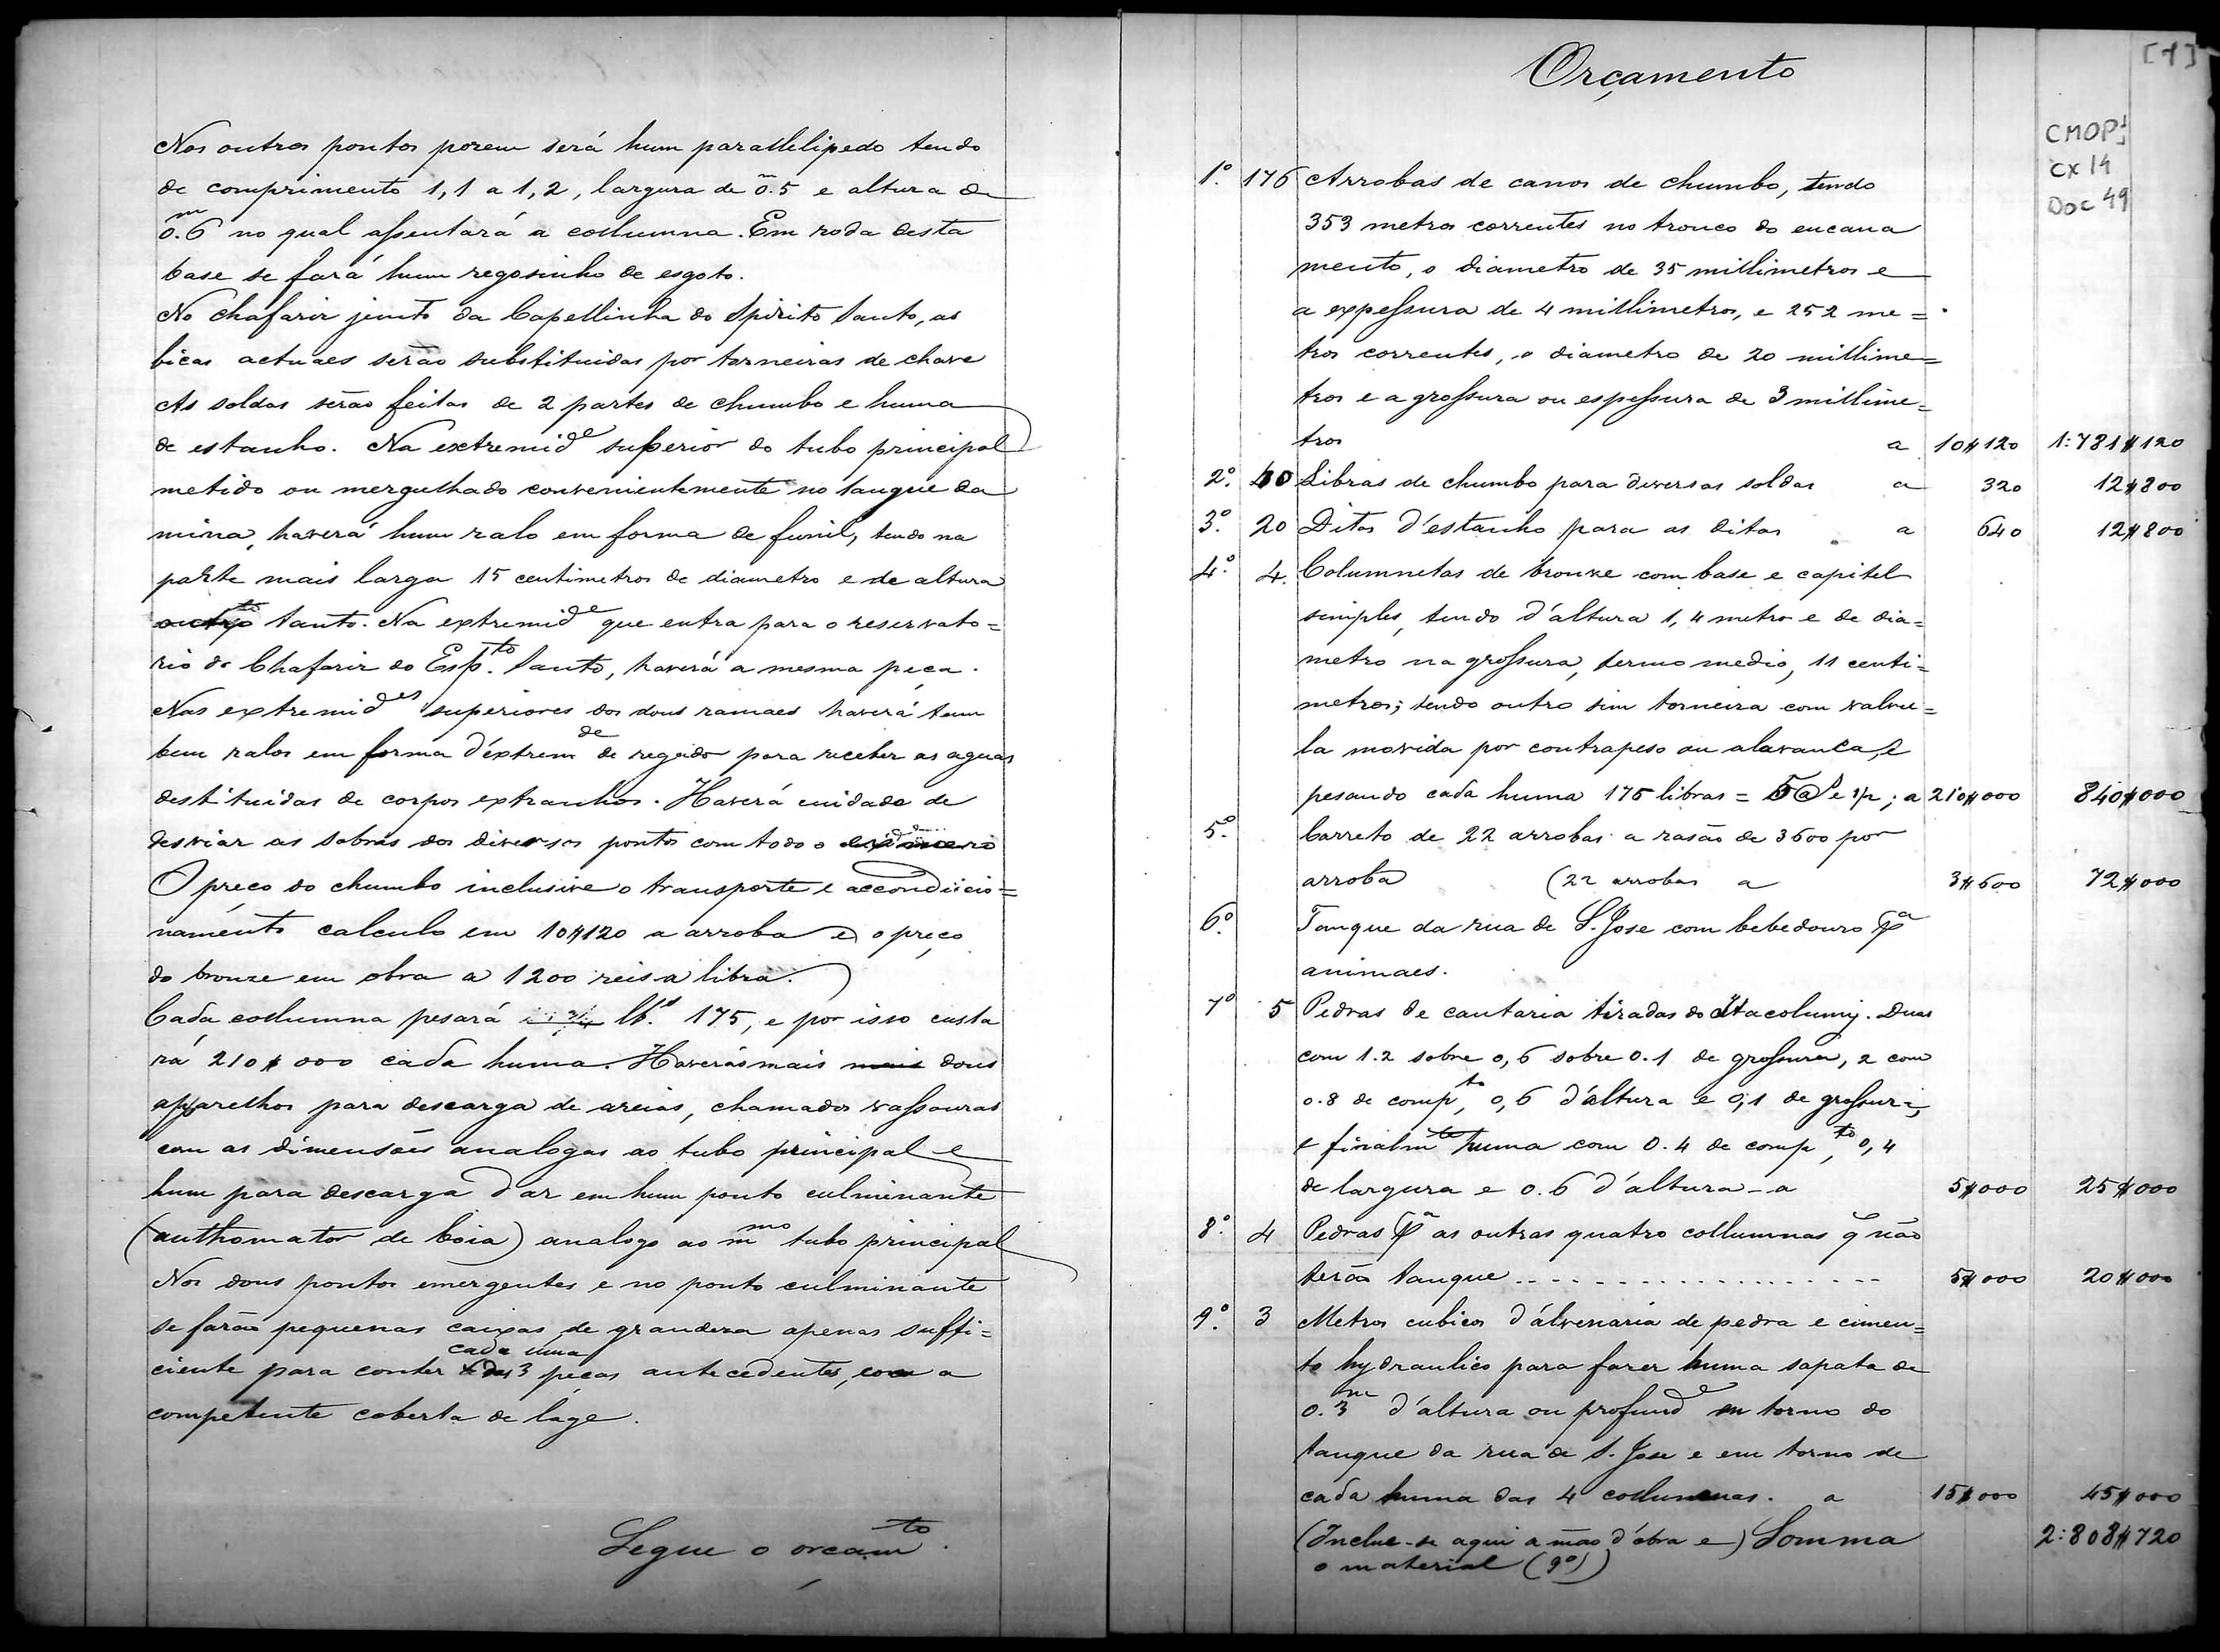 Nos outros pontos porem será hum parallelipedo tendo
de comprimento 1,1 a 1,2, largura de 0.5 e altura de
0.6 no qual assentará a collumna. Em roda desta
base se fará hum regosinho de esgoto.
No chafariz junto da Capellinha do Spirito Santo, as
bicas actuaes serão substituidas por torneiras de chave
As soldas serão feitas de 2 partes de chumbo e huma
de estanho. Na extremid.e superior do tubo principal
metido ou mergulhado convenientemente no tanque da
mina, haverá hum ralo em forma de funil, tendo na
parte mais larga 15 centimetros de diametro e de altura
tanto. Na extremid.e que entra para o reservato=
rio do Chafariz do Esp.to Santo, haverá a mesma peça.
Nas extremid.es superiores dos dous ramaes haverá tam
bem ralos em forma d'extrem.de de regador para receber as aguas
destituidas de corpos extranhos. Haverá cuidado de
desviar as sobras dos diversos pontos com todo o
O preço do chumbo inclusive o transporte e accondicio=
namento calculo em 10$120 a arroba e o preço
do bronze em obra a 1200 reis a libra.
Cada collumna pesará lb.s 175, e por isso custa
rá 210$000 cada huma. Haverá mais mais dous
apparelhos para descarga de areias, chamados vassouras
com as dimensões analogas ao tubo principal e
hum para descarga d'ar em hum ponto culminante
(authomator de boia) analogo ao m.mo tubo principal
Nos dous pontos emergentes e no ponto culminante
se farão pequenas caixas de grandeza apenas suffi=
cada uma
ciente para conter das 3 peças antecedentes, com a
competente coberta de lage.
Segue o orçam.to
[1]
CMOP
cx 14
Doc 49
Orçamento
1.º 176 Arrobas de canos de chumbo, tendo
353 metros correntes no tronco do encana
mento, o diametro de 35 millimetros e
a expessura de 4 millimetros, e 252 me=
tros correntes, o diametro de 20 millime=
tros e a grossura ou espessura de 3 millime=
tros a 10$120 1:781$120
2.º 40 Libras de chumbo para diversas soldas a 320 12$800
3.º 20 Ditas d'estanho para as ditas a 640 12$800
4.º 4. Columnetas de bronze com base e capitel
simples, tendo d'altura 1,4 metro e de dia=
metro na grossura, termo medio, 11 centi=
metros; tendo outro sim torneira com valvu=
la movida por contrapeso ou alavanca, e
pesando cada huma 175 libras = 5@ e 1/2; a 210$000 840$000
5.º Carreto de 22 arrobas a rasão de 3600 por
arroba (22 arrobas a 3$600 72$000
6.º Tanque da rua de S. Jose com bebedouro p.a
animaes.
7.º 5 Pedras de cantaria tiradas do Itacolumy. Duas
com 1.2 sobre 0,6 sobre 0.1 de grossura, 2 com
0.8 de comp.to, 0,6 d'altura e 0,1 de grossura,
e finalm.te huma com 0.4 de comp.to, 0,4
de largura e 0.6 d'altura - a 5$000 25$000
8.º 4 Pedras p.a as outras quatro collumnas q não
terão tanque 5$000 20$000
9.º 3 Metros cubicos d'alvenaria de pedra e cimen=
to hydraulico para fazer huma sapata de
0.3 m d'altura ou profund.e em torno do
tanque da rua de S. Jose e em torno de
cada huma das 4 collumnas. a 15$000 45$000
(Inclue-se aqui a mão d'obra e) Somma 2:808$720
o material (9º))